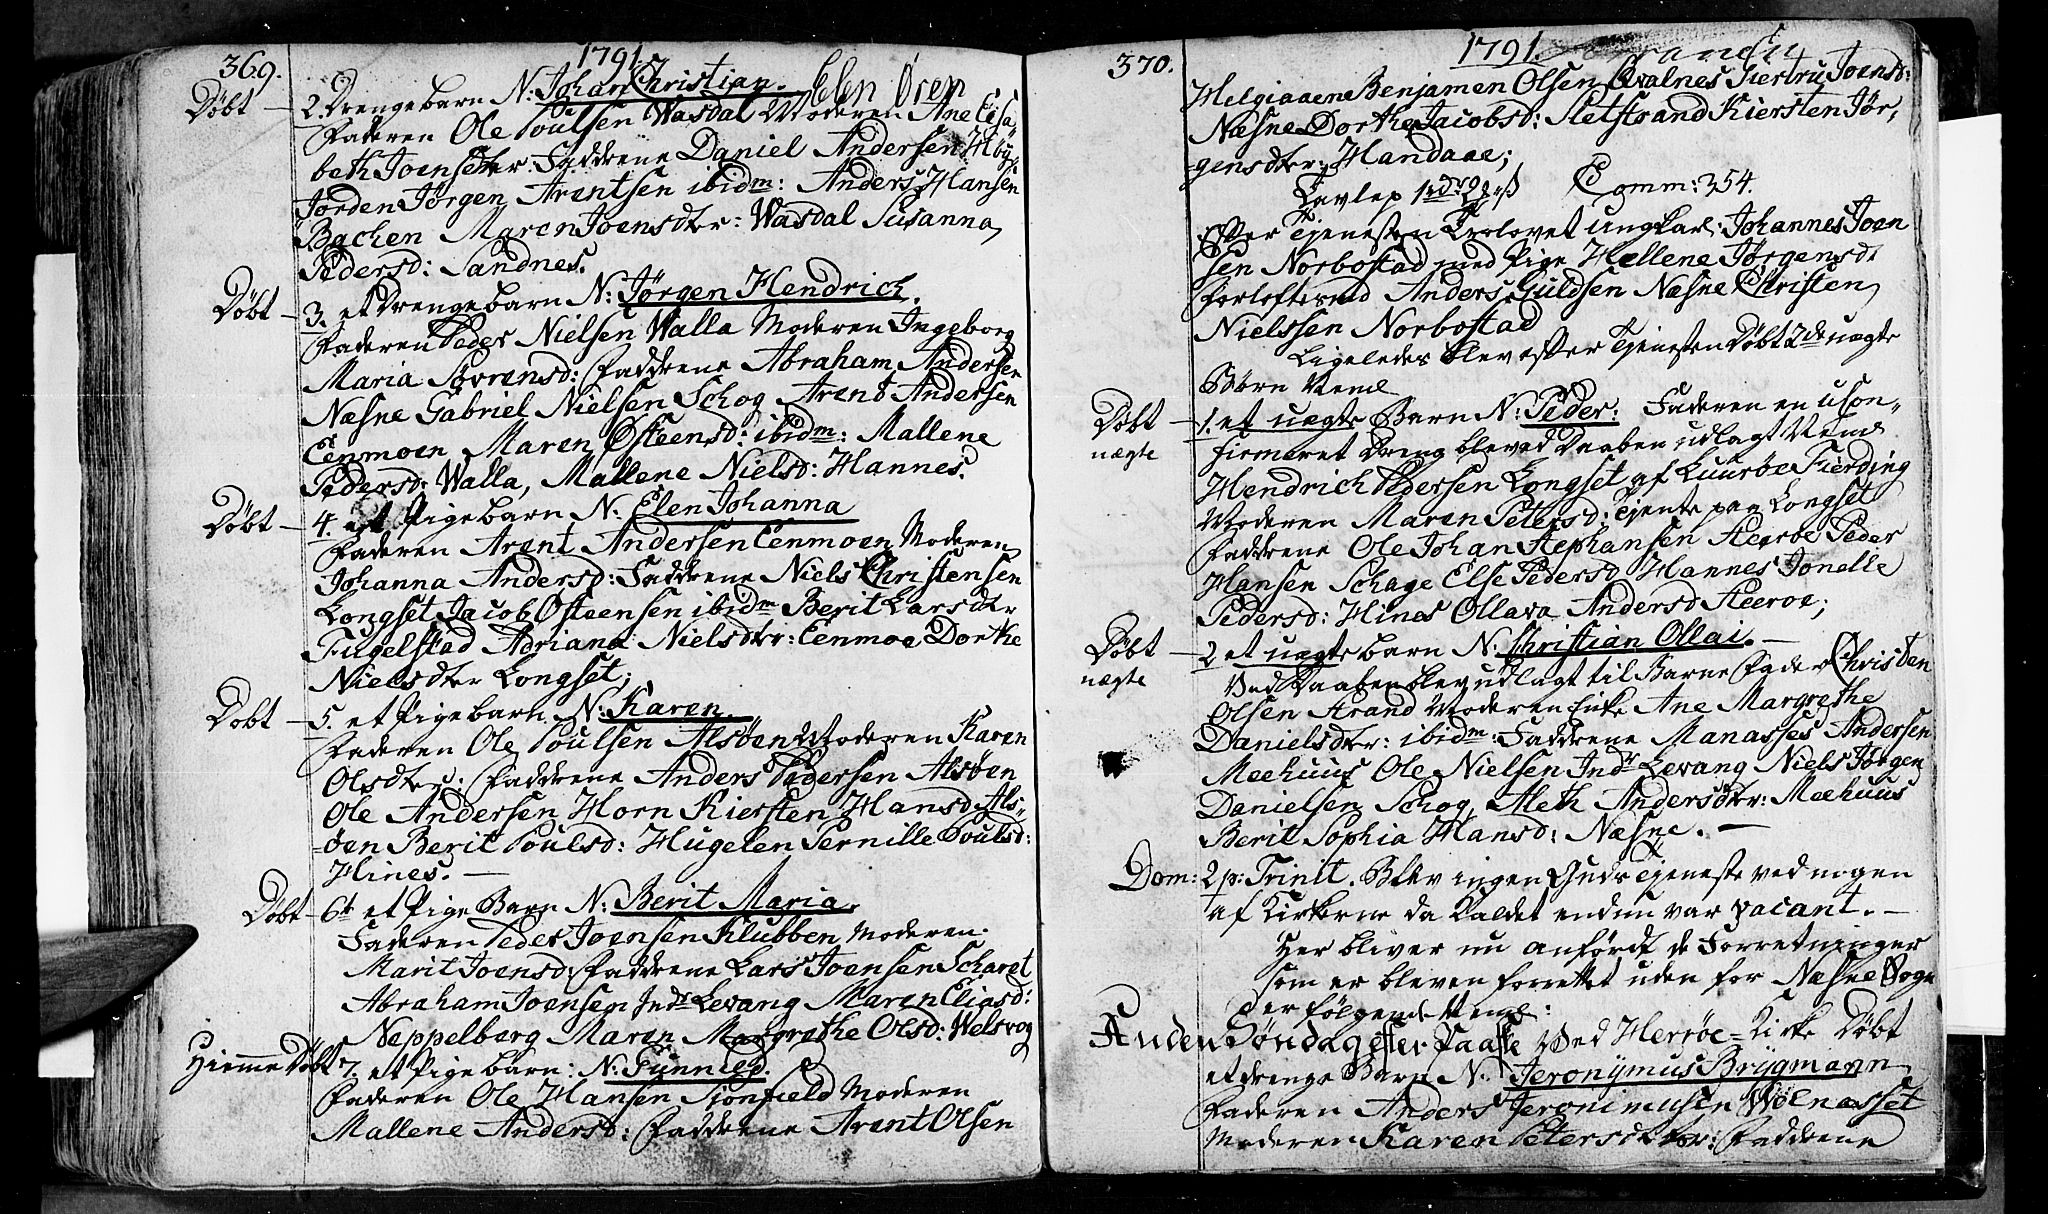 369.
1791.
Døbt
2. Drengebarn N: Johan Christian. Elen Øren
Faderen Ole Poulsen Wasdal Moderen Ane Lisa,
beth Joensdter. Fadderne Daniel Andersen Huby
Jorden Jørgen Arentsen ibidm: Anders Hansen
Bachen Maren Joensdter: Wasdal Susanna
Pedersd: Sandnes.
Døbt
3. et Drengebarn N: Jørgen Hendrich.
Faderen Peder Nielsen Walla Moderen Ingeborg
Maria Sørensd: Fadderne Abraham Andersen
Næsne Gabriel Nielsen Schog Arent Andersen
Eenmoen Maren Østeensd: ibidm: Mallene
Pedersd: Walla, Mallene Nielsd: Hannes.
Døbt
4. et Pigebarn N: Elen Johanna
Faderen Arent Andersen Eenmoen Moderen
Johanna Andersd: Fadderne Niels Christensen
Longset Jacob Østeensen ibidm Berit Larsdter
Fugelstad Adriana Nielsdtr: Eenmoe Dorthe
Nielsdter Longset;
Døbt
5. et Pigebarn N: Karen.
Faderen Ole Poulsen Alsøen Moderen Karen
Olsdter: Fadderne Anders Pedersen Alsøen
Ole Andersen Horn Kiersten Hansd: Als,
-øen Berit Poulsd: Hugelen Pernille Poulsd:
Hines. —
Døbt
6t et Pige Barn N: Berit Maria.
Faderen Peder Joensen Klubben Moderen
Marit Joensd: Fadderne Lars Joensen Scharet
Abraham Joensen Indr Levang Maren Eliasd:
Neppelberg Maren Margrethe Olsd: Welsvog
Hiemme Døbt
7. et Pigebarn: N: Gunnild.
Faderen Ole Hansen Sjonfield Moderen
Mallene Andersd: Fadderne Arent Olsen
370.
1791.
Helgiaaene Benjamen Olsen Qvalnes Giertru Joensd:
Næsne Dorthe Jacobsd: Sletstrand Kiersten Jør,
-gensdter: Handaae;
Tavlep 1rdr Comm: 354.
Efter Tjenesten Trolovet Ungkar: Johannes Joen
sen Norbostad med Pige Hellene Jørgensd.
Forloftesmd Anders Guldsen Næsne Christen
Nielssen Norbostad
Ligeledes blev efter Tjenesten Døbt 2de uægte
Børn Neml
Døbt
uægte
1. et uægte Barn N: Peder: Faderen en ukon,,
firmeret Dreng blev ved Daaben udlagt Neml
Hendrich Pedersen Longset af Luurøe Fierding
Moderen Maren Petersd: Tjente paa Longset
Fadderne Ole Johan Stephansen Aeroe Peder
Hansen Schage Else Pedersd Hannes Jonelle
Pedersd: Hines Ollava Andersd Aeroe;
Døbt
uægte
2 et uægte barn N: Christian Ollai. —
Ved Daaben blev udlagt til Barne Fader Christen
Olsen Strand Moderen Enke Ane Margrethe
Danielsdtr: ibidm: Fadderne Manasses Andersen
Meehuus Ole Nielsen Indr Levang Niels Jørgen
Danielsen Schog, Aleth Andersdtr: Meehuus
Berit Sophia Hansd: Næsne. —
Dom: 2 p: Trinit. Blev ingen Guds Tjeneste ved nogen
af Kirkerne da Kaldet endnu var vacant. —
Her bliver nu anførdt de Forretninger
som er bleven forrettet uden for Næsne Sogn
der følgende Neml:
Anden Søndag efter Paaske Ved Herrøe-Kirke Døbt
et drenge Barn N: Jeronymus Brygmann
Faderen Anders Jeronimusen Wolnasset
Moderen Karen Petersdtter: Fadderne